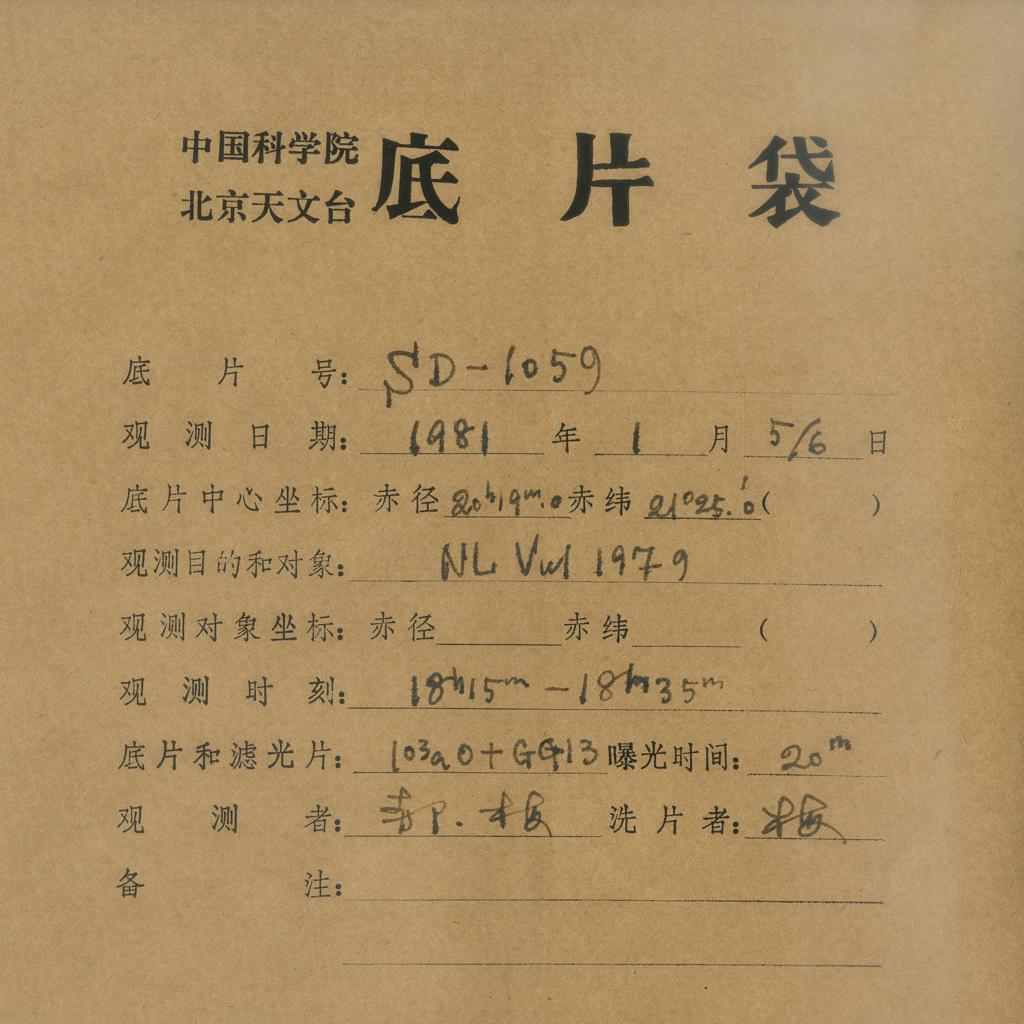 中国科学院
北京天文台
底片袋
底片号：SD-1059
观测日期：1981年1月5/6日
底片中心坐标：赤径20ʰ19ᵐ.0赤纬21°25.'0（ ）
观测目的和对象：NL Vul 1979
观测对象坐标：赤径 赤纬 （ ）
观测时刻：18ʰ15ᵐ-18ʰ35ᵐ
底片和滤光片：103aO+GG13曝光时间：20ᵐ
观测者：郝.梅 洗片者：梅
备注：